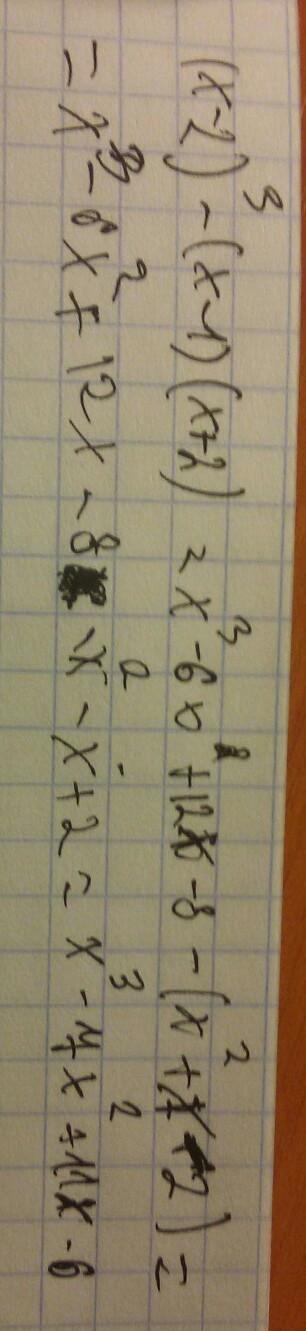 (x-2)³ - (x-1)(x+2) = x³ - 6x² + 12x - 8 - (x² + x - 2) =
= x³ - 6x² + 12x - 8 - x² - x + 2 = x³ - 7x² + 11x - 6